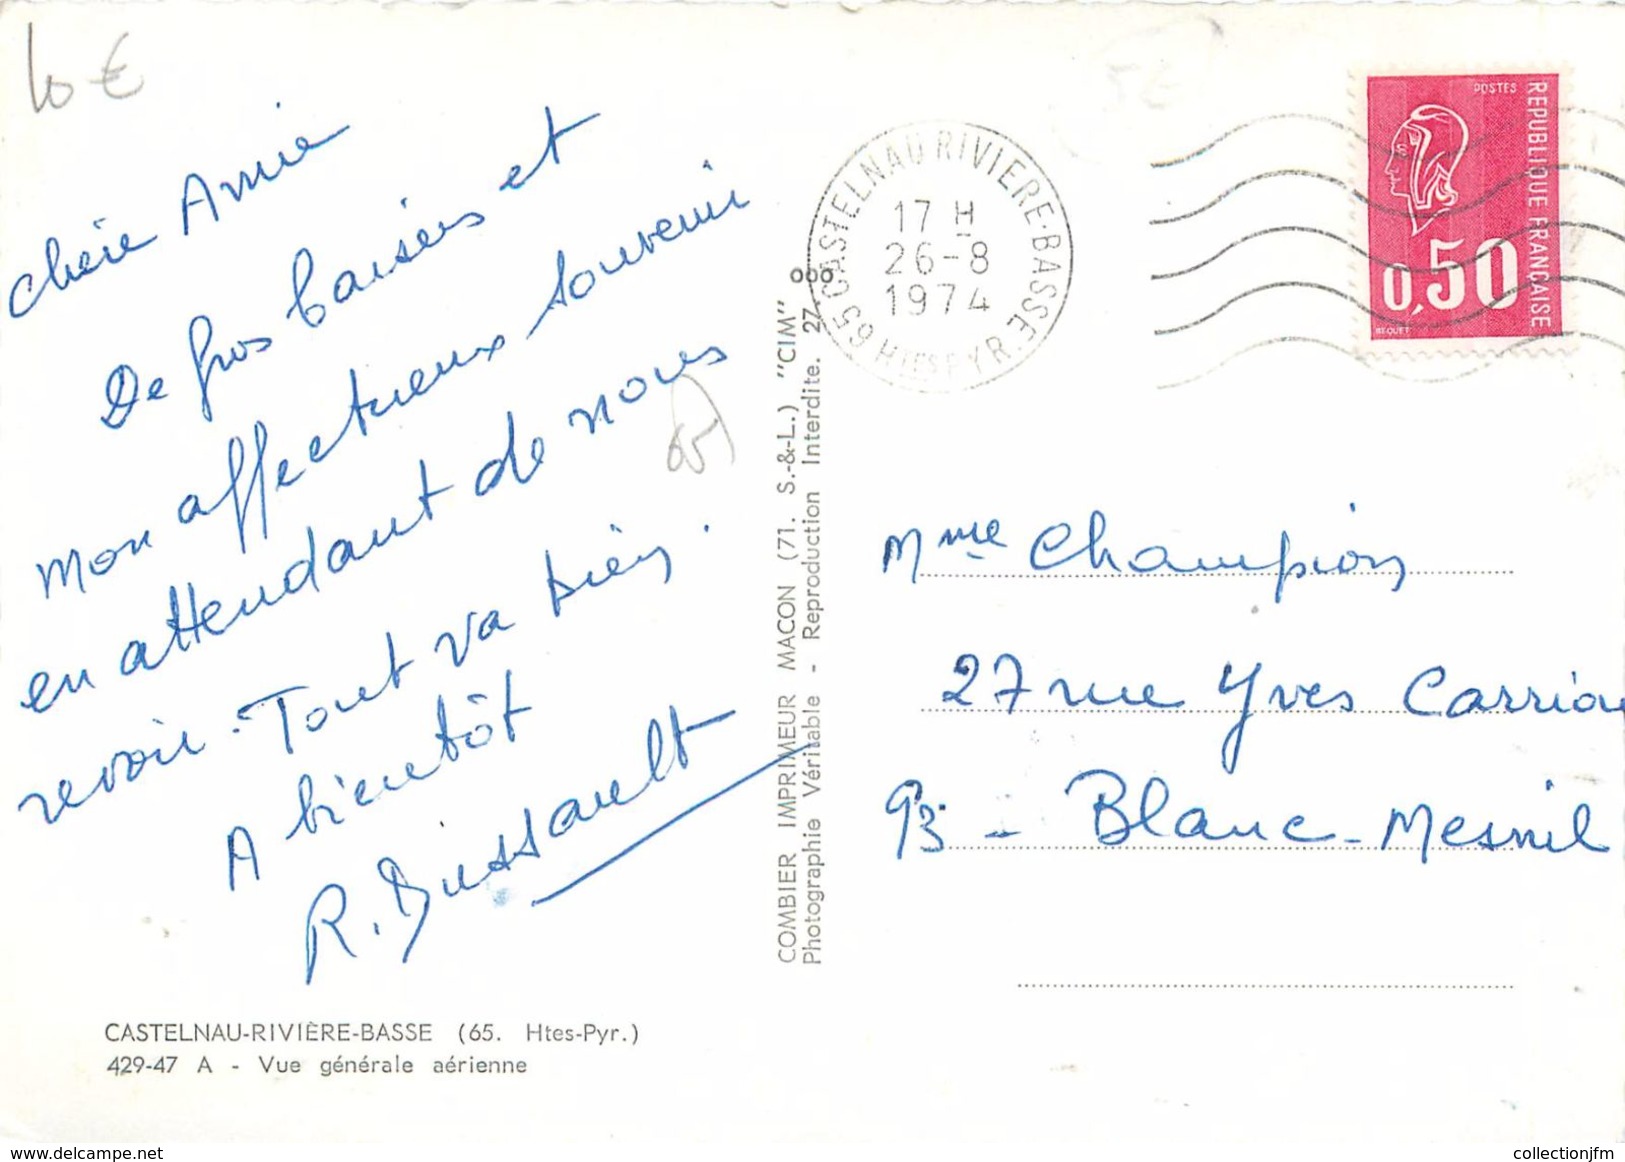 10 €
chère Amie
De gros baisers et
mon affectueux souvenir
en attendant de nous
revoir. Tout va bien.
A bientôt
R. Dussault
65
CASTELNAU-RIVIÈRE-BASSE (65. Htes-Pyr.)
429-47 A - Vue générale aérienne
COMBIER IMPRIMEUR MACON (71. S.-&-L.) "CIM"
Photographie Véritable - Reproduction Interdite. 27.
65 CASTELNAU RIVIERE-BASSE
HTES PYR.
17 H
26-8
1974
POSTES
REPUBLIQUE FRANÇAISE
0,50
BEQUET
Mme Champion
27 rue Yves Carriou
93 - Blanc-Mesnil
www.delcampe.net
collectionjfm